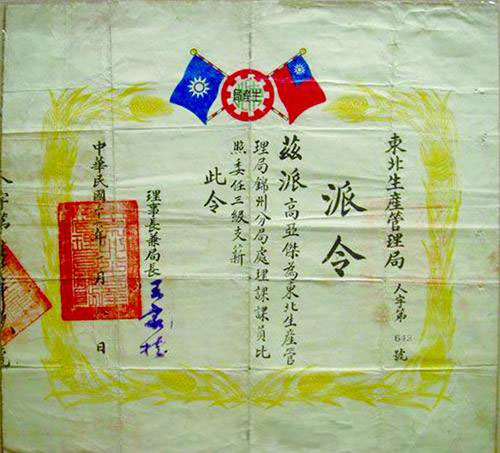 生產局
東北生產管理局
人字第 號
派令
茲派高亞傑為東北生產管
理局錦州分局處理課課員比
照委任三級支薪
此令
理事長兼局長
中華民國 十六年 月 日